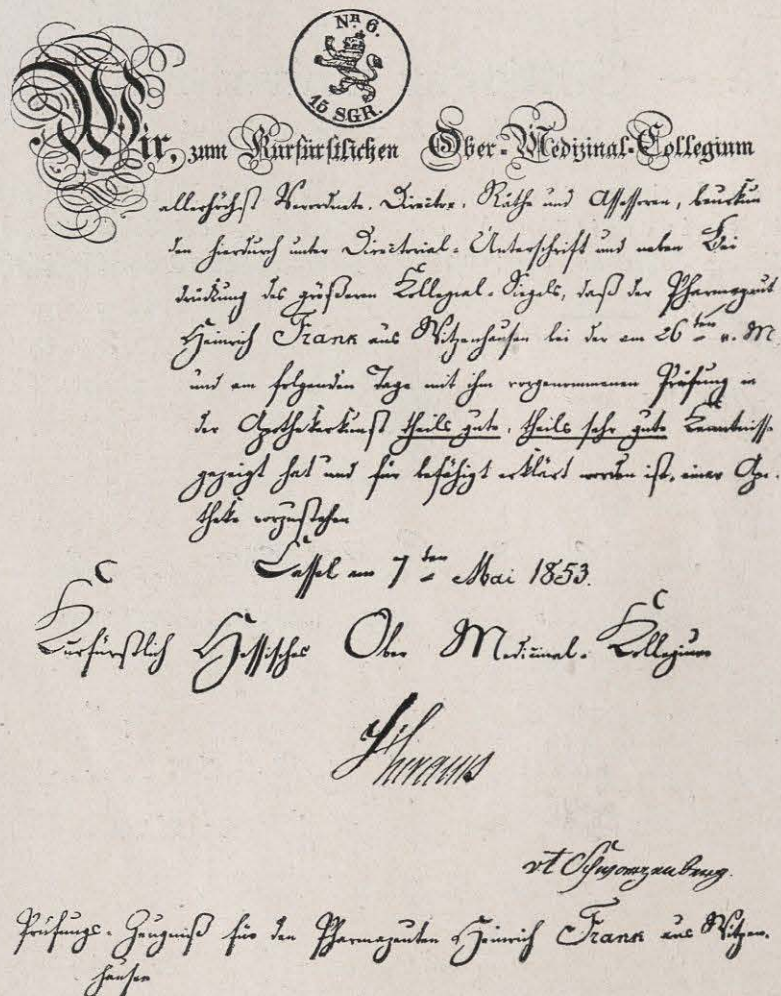 Nr. 6.
15 SGR.
Wir, zum Kurfürstlichen Ober-Medizinal-Collegium
allerhöchst Verordnete, Director, Räthe und Assessoren, beurkun
den hierdurch unter Directorial-Unterschrift und neben Bei
drückung des größeren Kollegial-Siegels, daß der Pharmazeut
Heinrich Frank aus Witzenhausen bei der am 26ten v. M.
und am folgenden Tage mit ihm vorgenommenen Prüfung in
der Apothekerkunst theils gute, theils sehr gute Kenntnisse
gezeigt hat und für befähigt erklärt worden ist, einer Apo-
theke vorzustehen
Cassel am 7ten Mai 1853.
Kurfürstlich Hessisches Ober Medizinal-Kollegium
vt Schwarzenberg.
Prüfungs-Zeugniß für den Pharmazeuten Heinrich Frank aus Witzen-
hausen